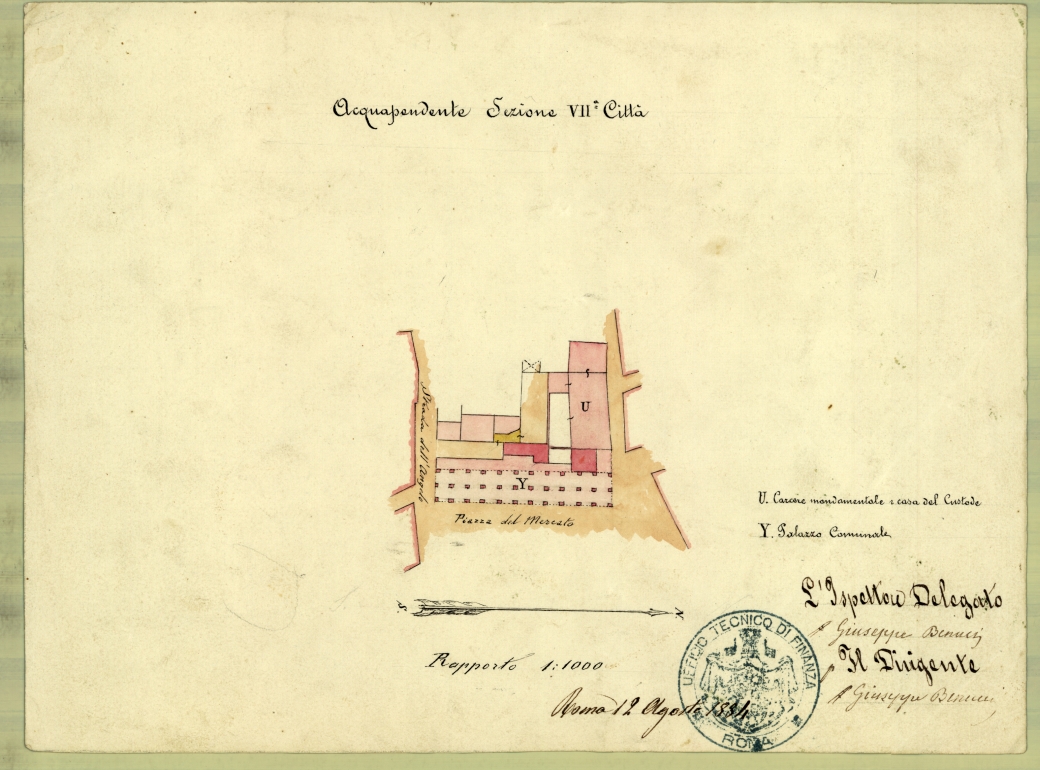 Acquapendente Sezione VIIª Città
Strada dell'Angelo
U
Y
Piazza del Mercato
U. Carcere mandamentale e casa del Custode
Y. Palazzo Comunale
S N
L'Ispettore Delegato
Giuseppe
Il Dirigente
Giuseppe
Rapporto 1:1000
Roma 12 Agosto 1884
UFFICIO TECNICO DI FINANZA
ROMA